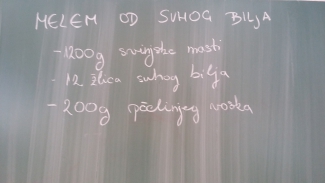 MELEM OD SUHOG BILJA
- 1200g svinjske masti
- 12 žlica suhog bilja
- 200g pčelinjeg voska